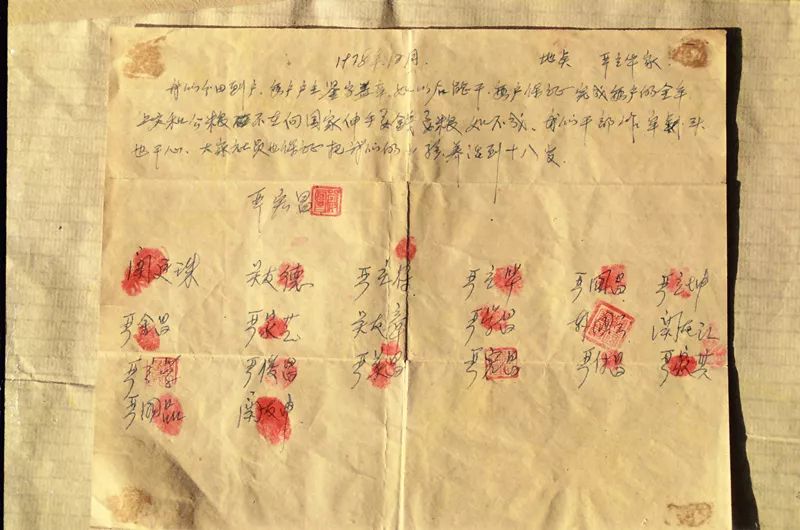 1978年12月 地点 严立华家
我们分田到户 每户户主签字盖章 如以后能干 每户保证完成每户的全年
上交和公粮 不在向国家伸手要钱要粮 如不成 我们干部作牢 头
也干心 大家社员也保证把我们的小孩养活到十八岁
严宏昌
关廷珠 关友德 严立符 严立华 严国昌 严立坤
严金昌 严家芝 关友章 严学昌 韩国云 关友江
严立学 严俊昌 严美昌 严宏昌 严付昌 严家其
严国品 关友坤